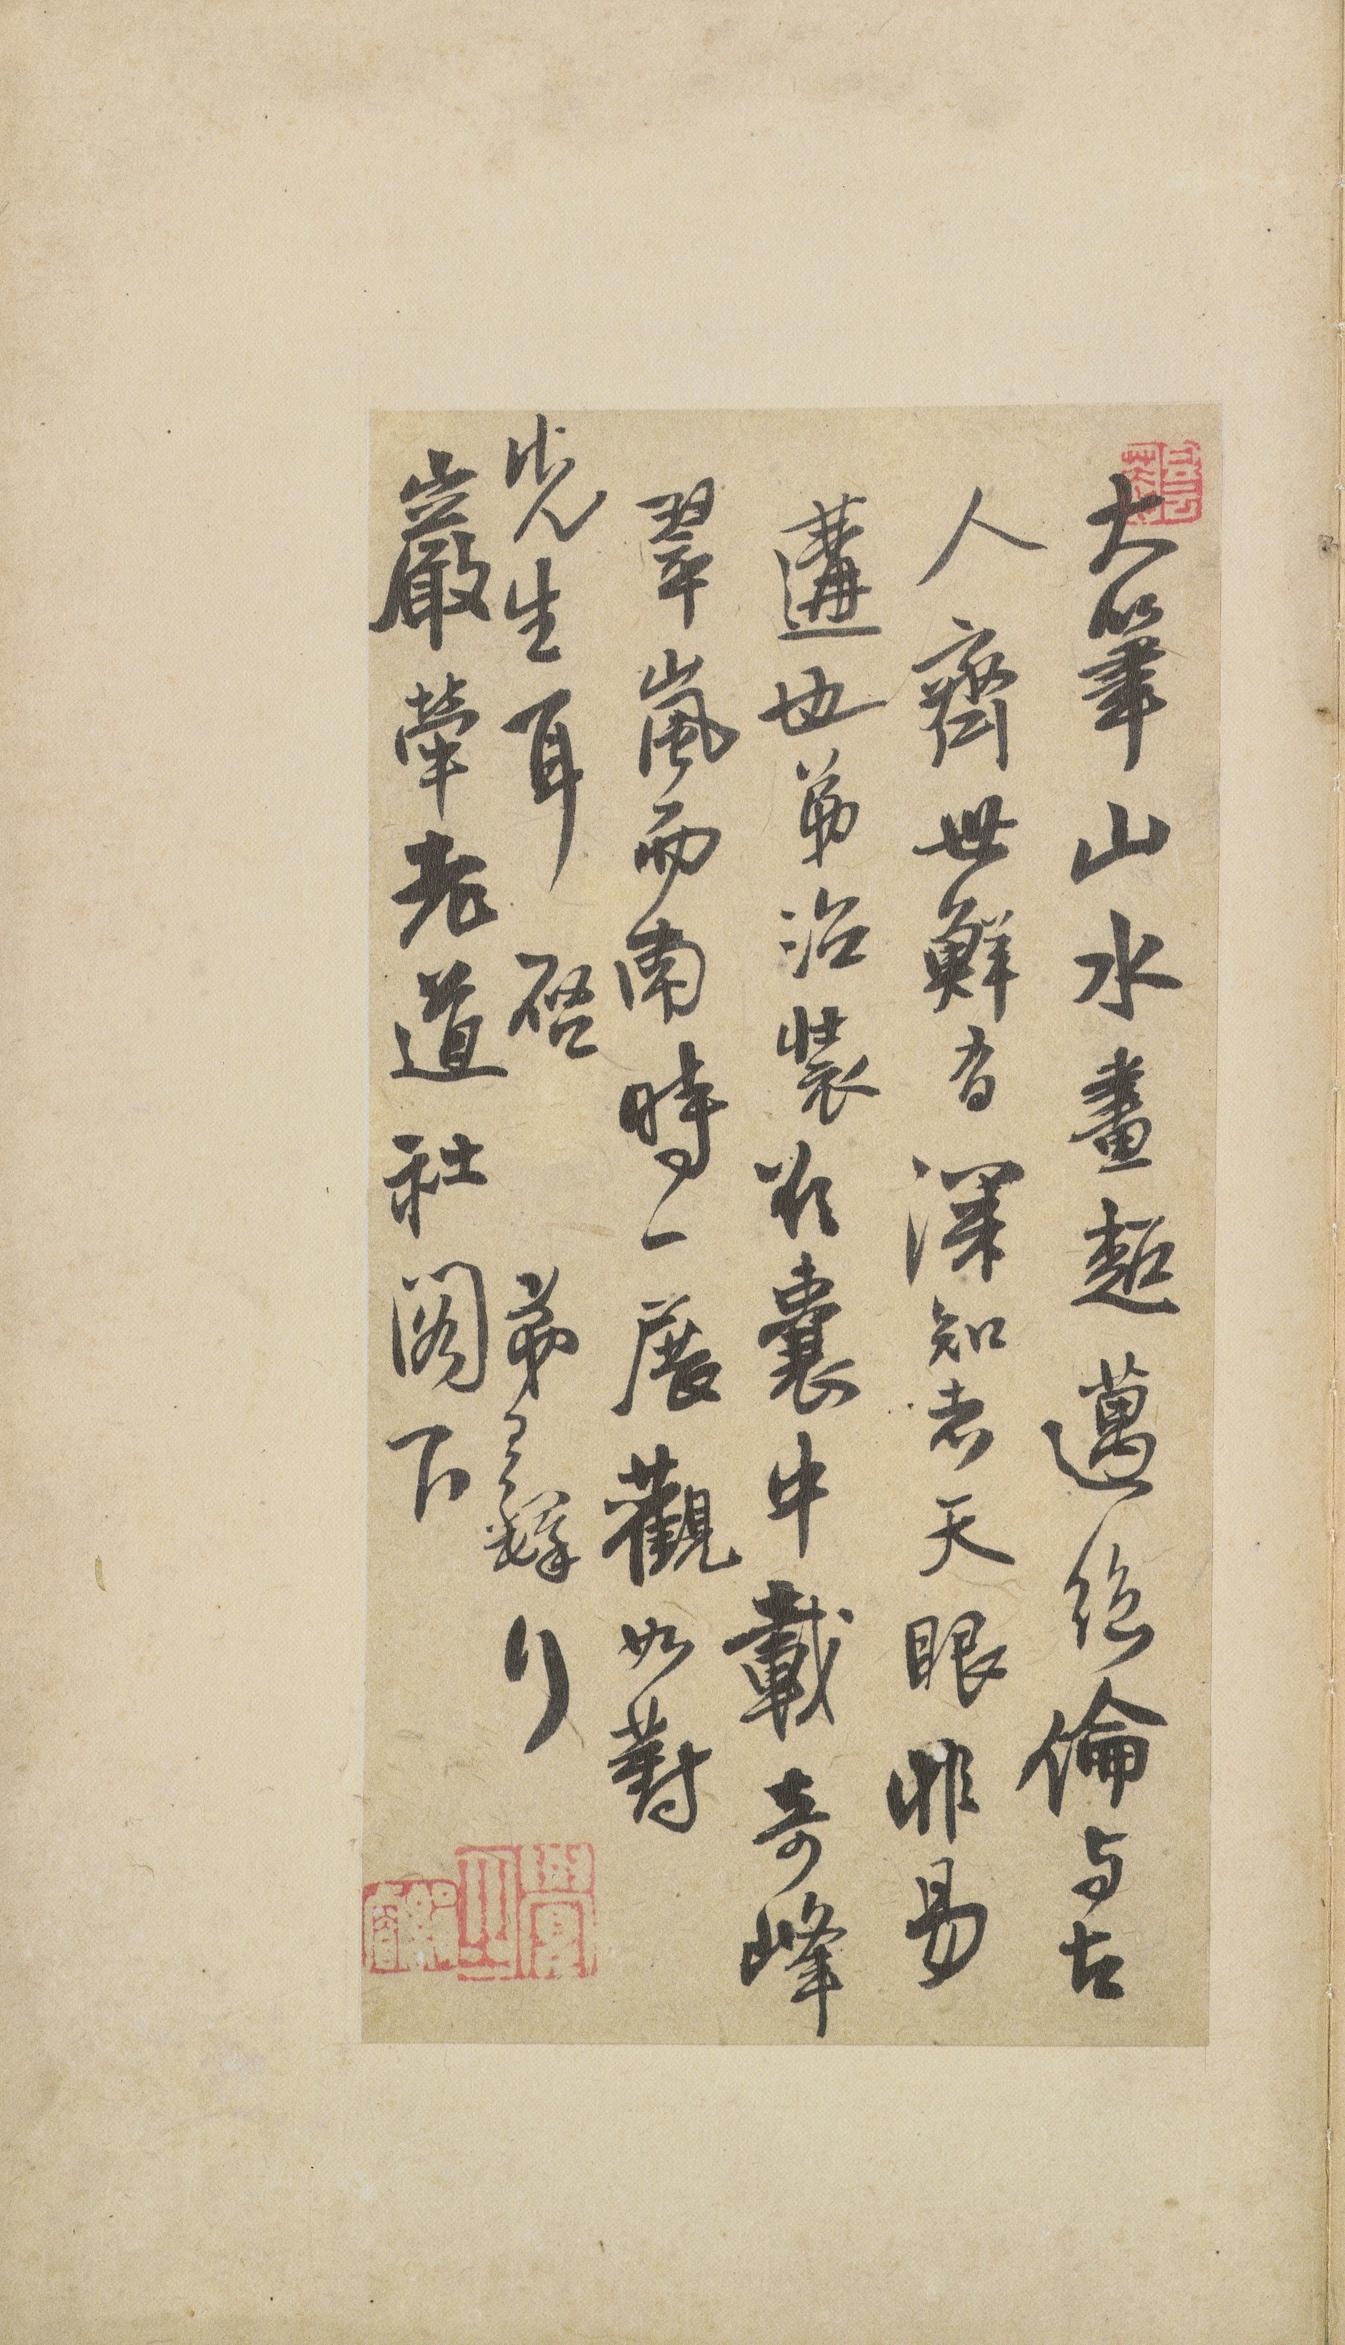 大筆山水畫超邁絕倫与古
人齊世鮮有深知者天眼非易
遘也弟治裝於囊中載奇峰
翠嵐而南時一展觀如對
先生耳 啓 弟 頓
巖犖老道社閣下